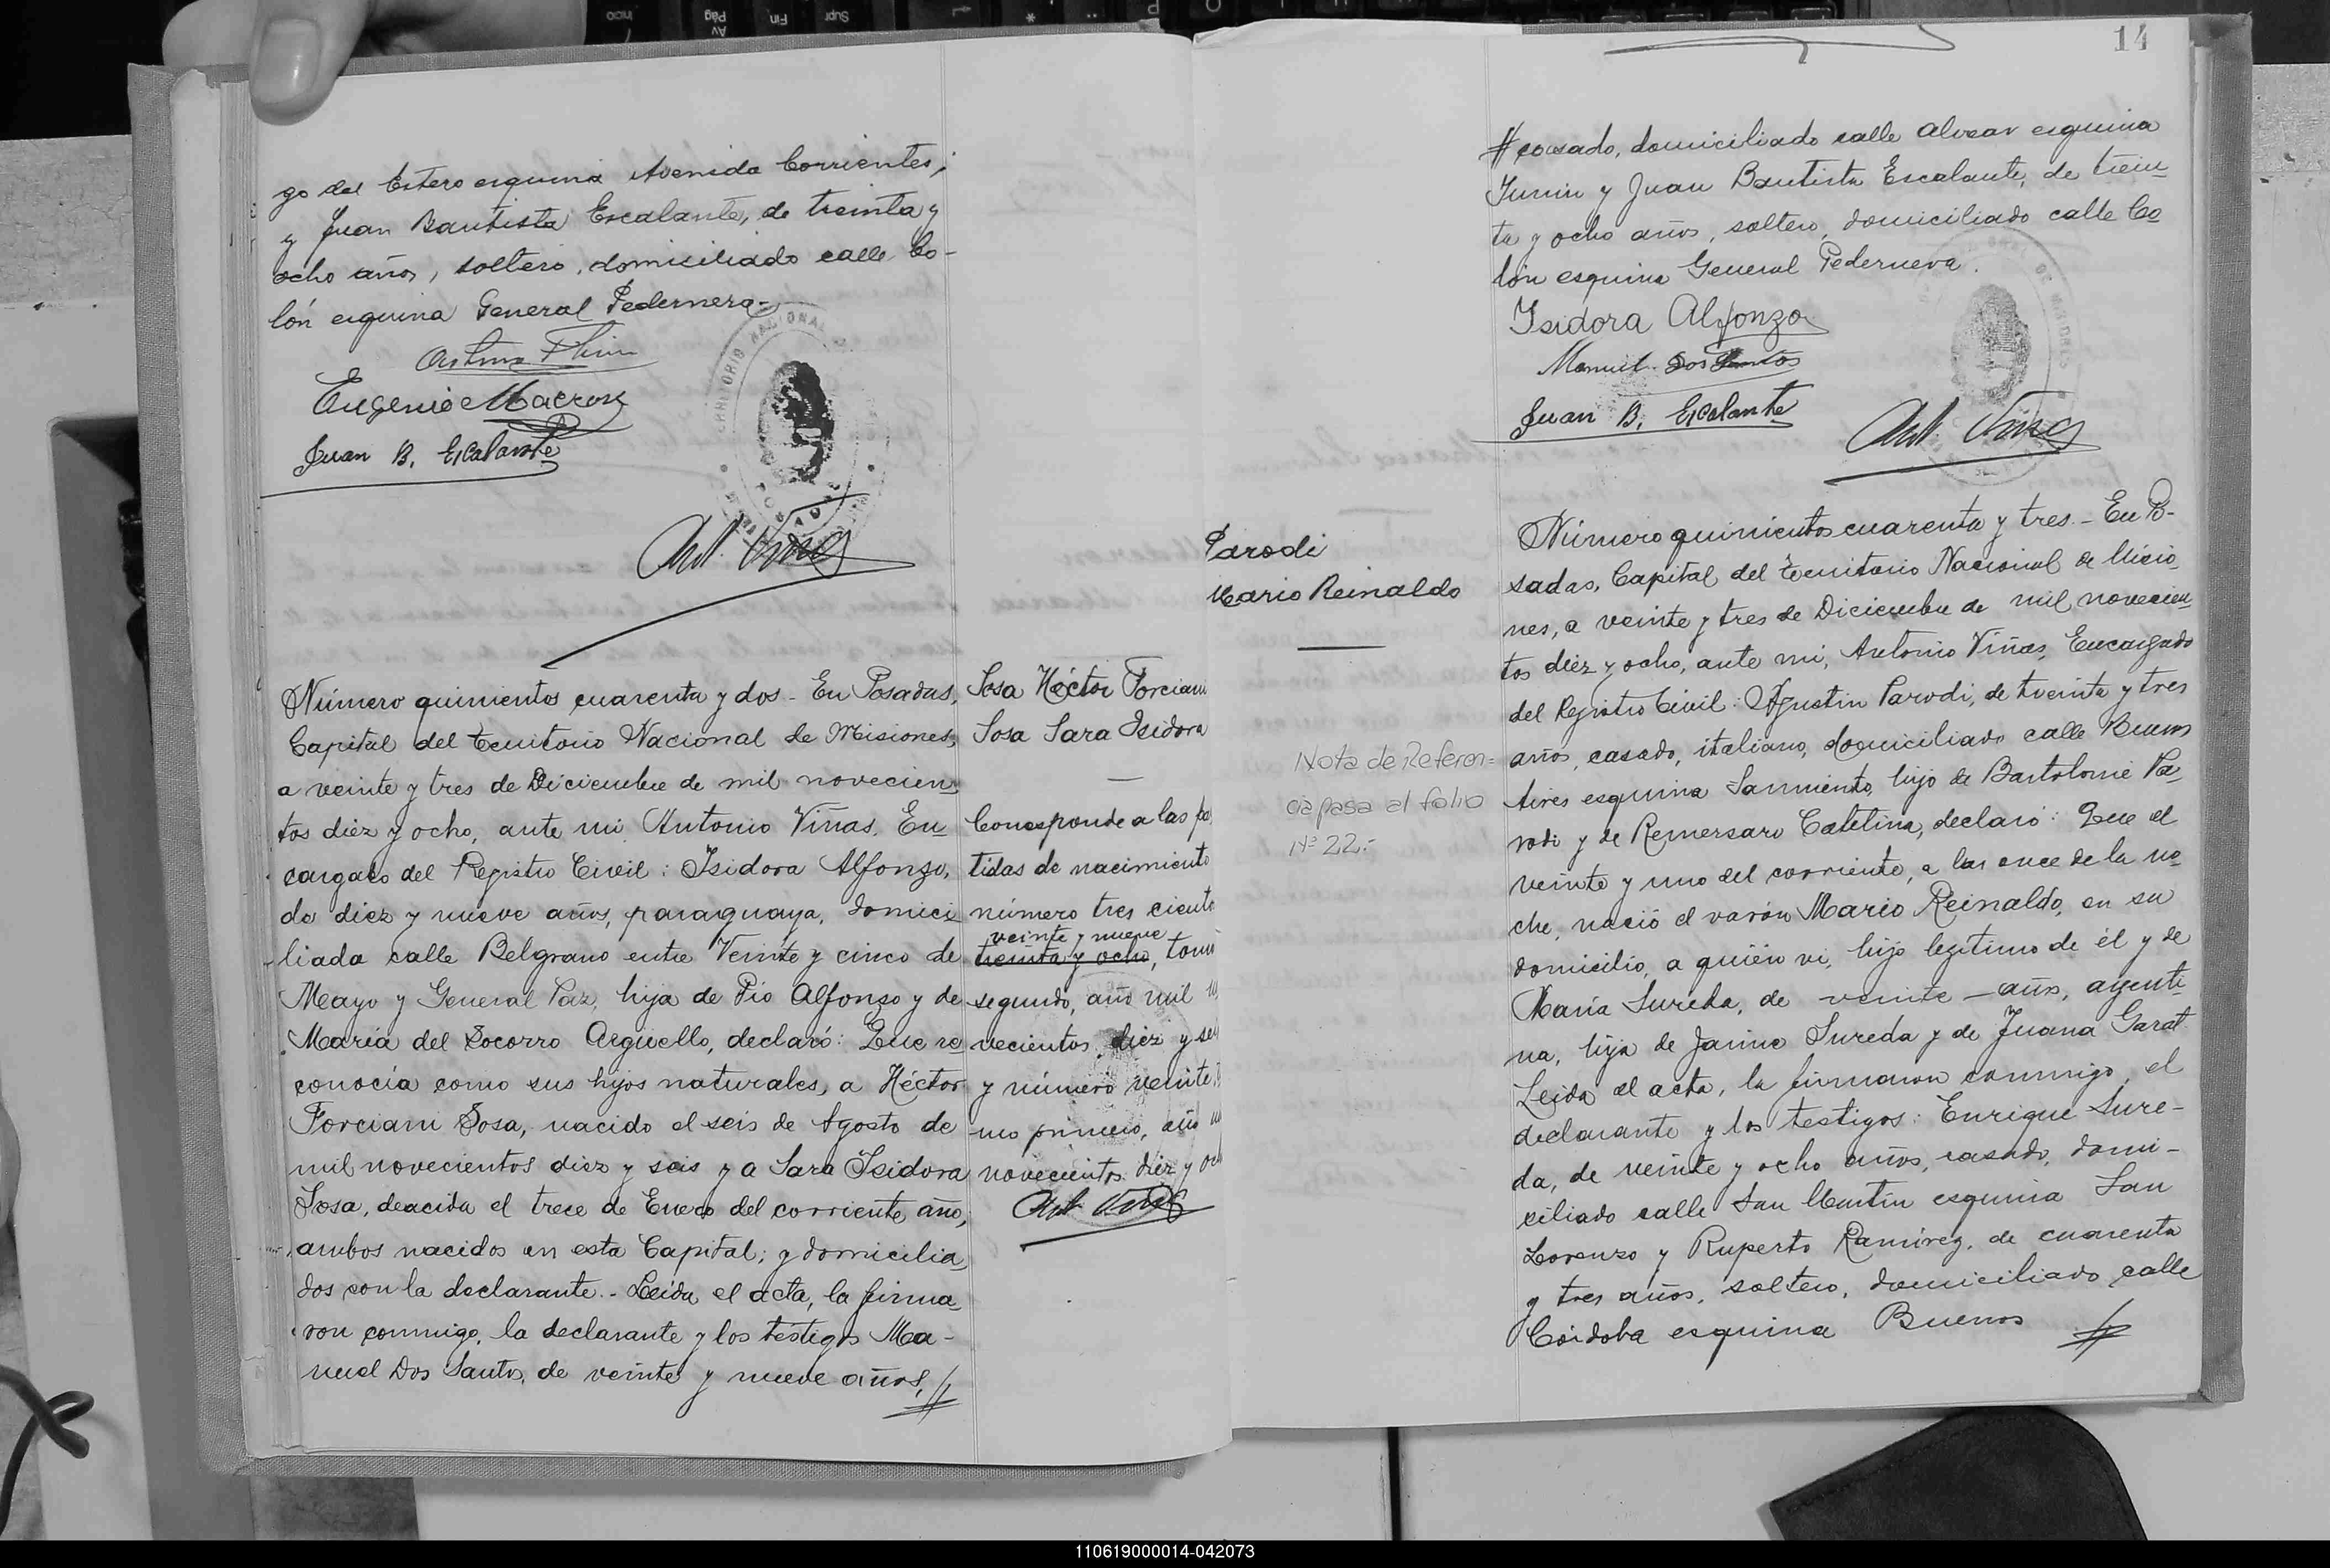 go del Estero esquina Avenida Corrientes;
y Juan Bautista Escalante, de treinta y
ocho años, soltero, domiciliado calle Co-
lón esquina General Pedernera.-
Eugenio
Juan B. Escalante
Ant. Viñas
Número quinientos cuarenta y dos - En Posadas,
Capital del Territorio Nacional de Misiones,
a veinte y tres de Diciembre de mil novecien-
tos diez y ocho, ante mi Antonio Viñas, En-
cargado del Registro Civil: Isidora Alfonzo,
de diez y nueve años, paraguaya, domici-
liada calle Belgrano entre Veinte y cinco de
Mayo y General Paz, hija de Pio Alfonzo y de
María del Socorro Arguello, declaró: Que re-
conocía como sus hijos naturales, a Héctor
Forciani Sosa, nacido el seis de Agosto de
mil novecientos diez y seis y a Sara Isidora
Sosa, nacida el trece de Enero del corriente año,
ambos nacidos en esta Capital; y domicilia-
dos con la declarante.- Leída el acta, la firma-
ron conmigo, la declarante y los testigos Ma-
nuel Dos Santos, de veinte y nueve años, //
Sosa Héctor Forciani
Sosa Sara Isidora
Corresponde a las par
tidas de nacimiento
número tres ciento
veinte y nueve
treinta y ocho, tomo
segundo, año mil no
vecientos diez y seis
y número veinte, to
mo primero, año mil
novecientos diez y ocho
Ant. Viñas
14
// casado, domiciliado calle Alvear esquina
Junin y Juan Bautista Escalante, de trein-
ta y ocho años, soltero, domiciliado calle Co-
lón esquina General Pedernera.
Isidora Alfonzo
Manuel Dos Santos
Juan B. Escalante
Ant. Viñas
Parodi
Mario Reinaldo
Nota de Referen=
cia pasa al folio
Nº 22.-
Número quinientos cuarenta y tres.- En Po-
sadas, Capital del Territorio Nacional de Misio-
nes, a veinte y tres de Diciembre de mil novecien-
tos diez y ocho, ante mi, Antonio Viñas, Encargado
del Registro Civil: Agustin Parodi, de treinta y tres
años, casado, italiano, domiciliado calle Buenos
Aires esquina Sarmiento, hijo de Bartolomé Pa-
rodi y de Remersaro Catelina, declaró: Que el
veinte y uno del corriente, a las once de la no-
che, nació el varón Mario Reinaldo, en su
domicilio, a quién vi, hijo legítimo de él y de
María Sureda, de veinte - años, argenti-
na, hija de Jaime Sureda y de Juana Garat.
Leída el acta, la firmaron conmigo, el
declarante y los testigos: Enrique Sure-
da, de veinte y ocho años, casado, domi-
ciliado calle San Martin esquina San
Lorenzo y Ruperto Ramírez, de cuarenta
y tres años, soltero, domiciliado calle
Córdoba esquina Buenos //
110619000014-042073